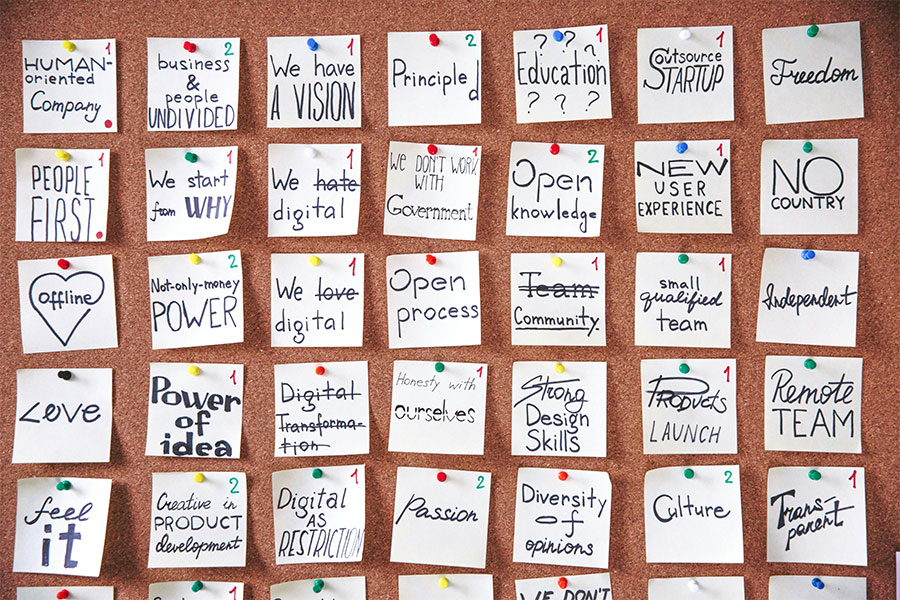 HUMAN-
oriented
Company
2
business
&
people
UNDIVIDED
1
We have
A VISION
2
Principled
1
? ? ?
Education
? ? ?
1
Outsource
STARTUP
Freedom
1
PEOPLE
FIRST
1
We start
from WHY
1
We hate
digital
1
We DON'T WORK
WITH
Government
2
Open
knowledge
1
NEW
USER
EXPERIENCE
NO
COUNTRY
offline
2
Not-only-money
POWER
1
We love
digital
Open
process
1
Team
Community
1
small
qualified
team
Independent
Love
1
Power
of
idea
Digital
Transforma-
tion
1
Honesty with
ourselves
Strong
Design
Skills
1
Products
LAUNCH
Remote
TEAM
feel
it
2
Creative in
PRODUCT
development
1
Digital
AS
RESTRICTION
2
Passion
Diversity
of
opinions
2
Culture
1
Trans-
parent
1
WE DON'T